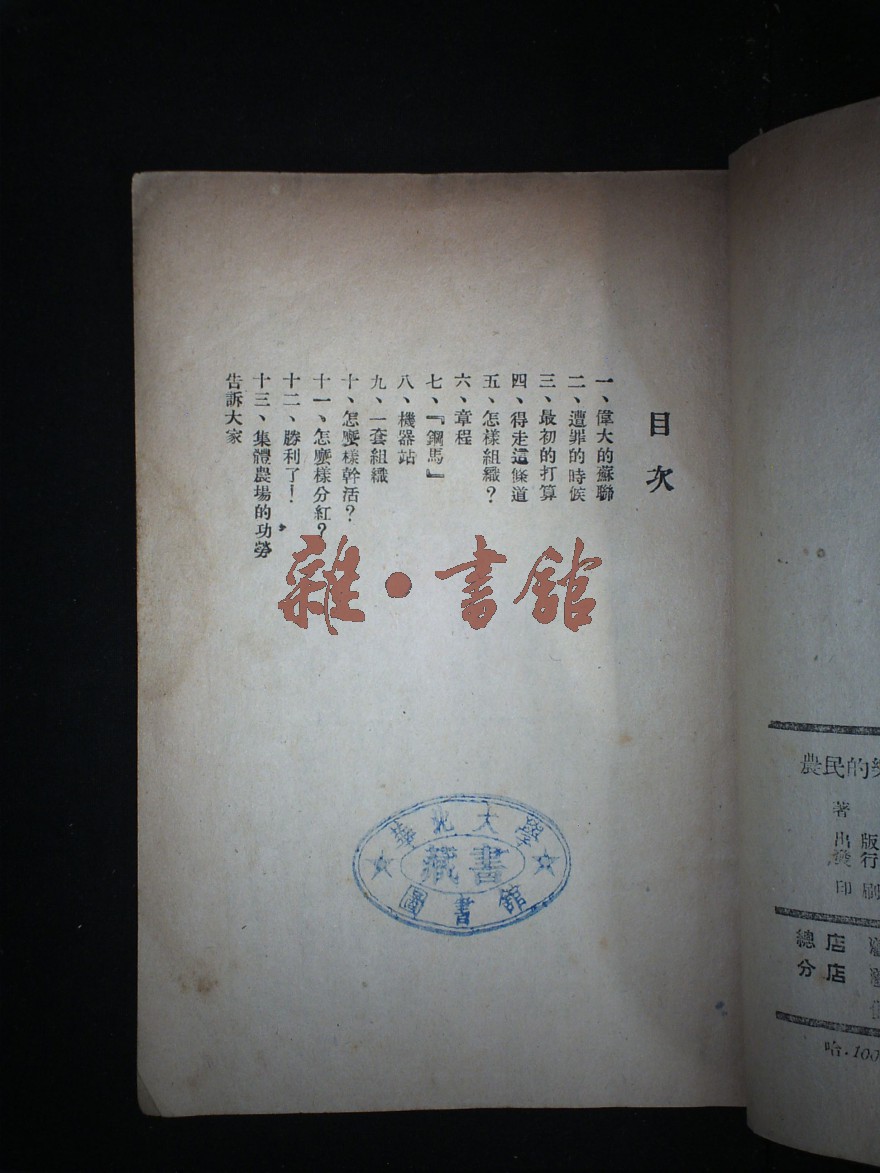 目次
一、偉大的蘇聯
二、遭罪的時候
三、最初的打算
四、得走這條道
五、怎樣組織？
六、章程
七、『鋼馬』
八、機器站
九、一套組織
十、怎麼樣幹活？
十一、怎麼樣分紅？
十二、勝利了！
十三、集體農場的功勞
告訴大家
雜·書館
華北大學
藏書
圖書館
農民的
著
出版
發行
印刷
總店
分店
哈.100